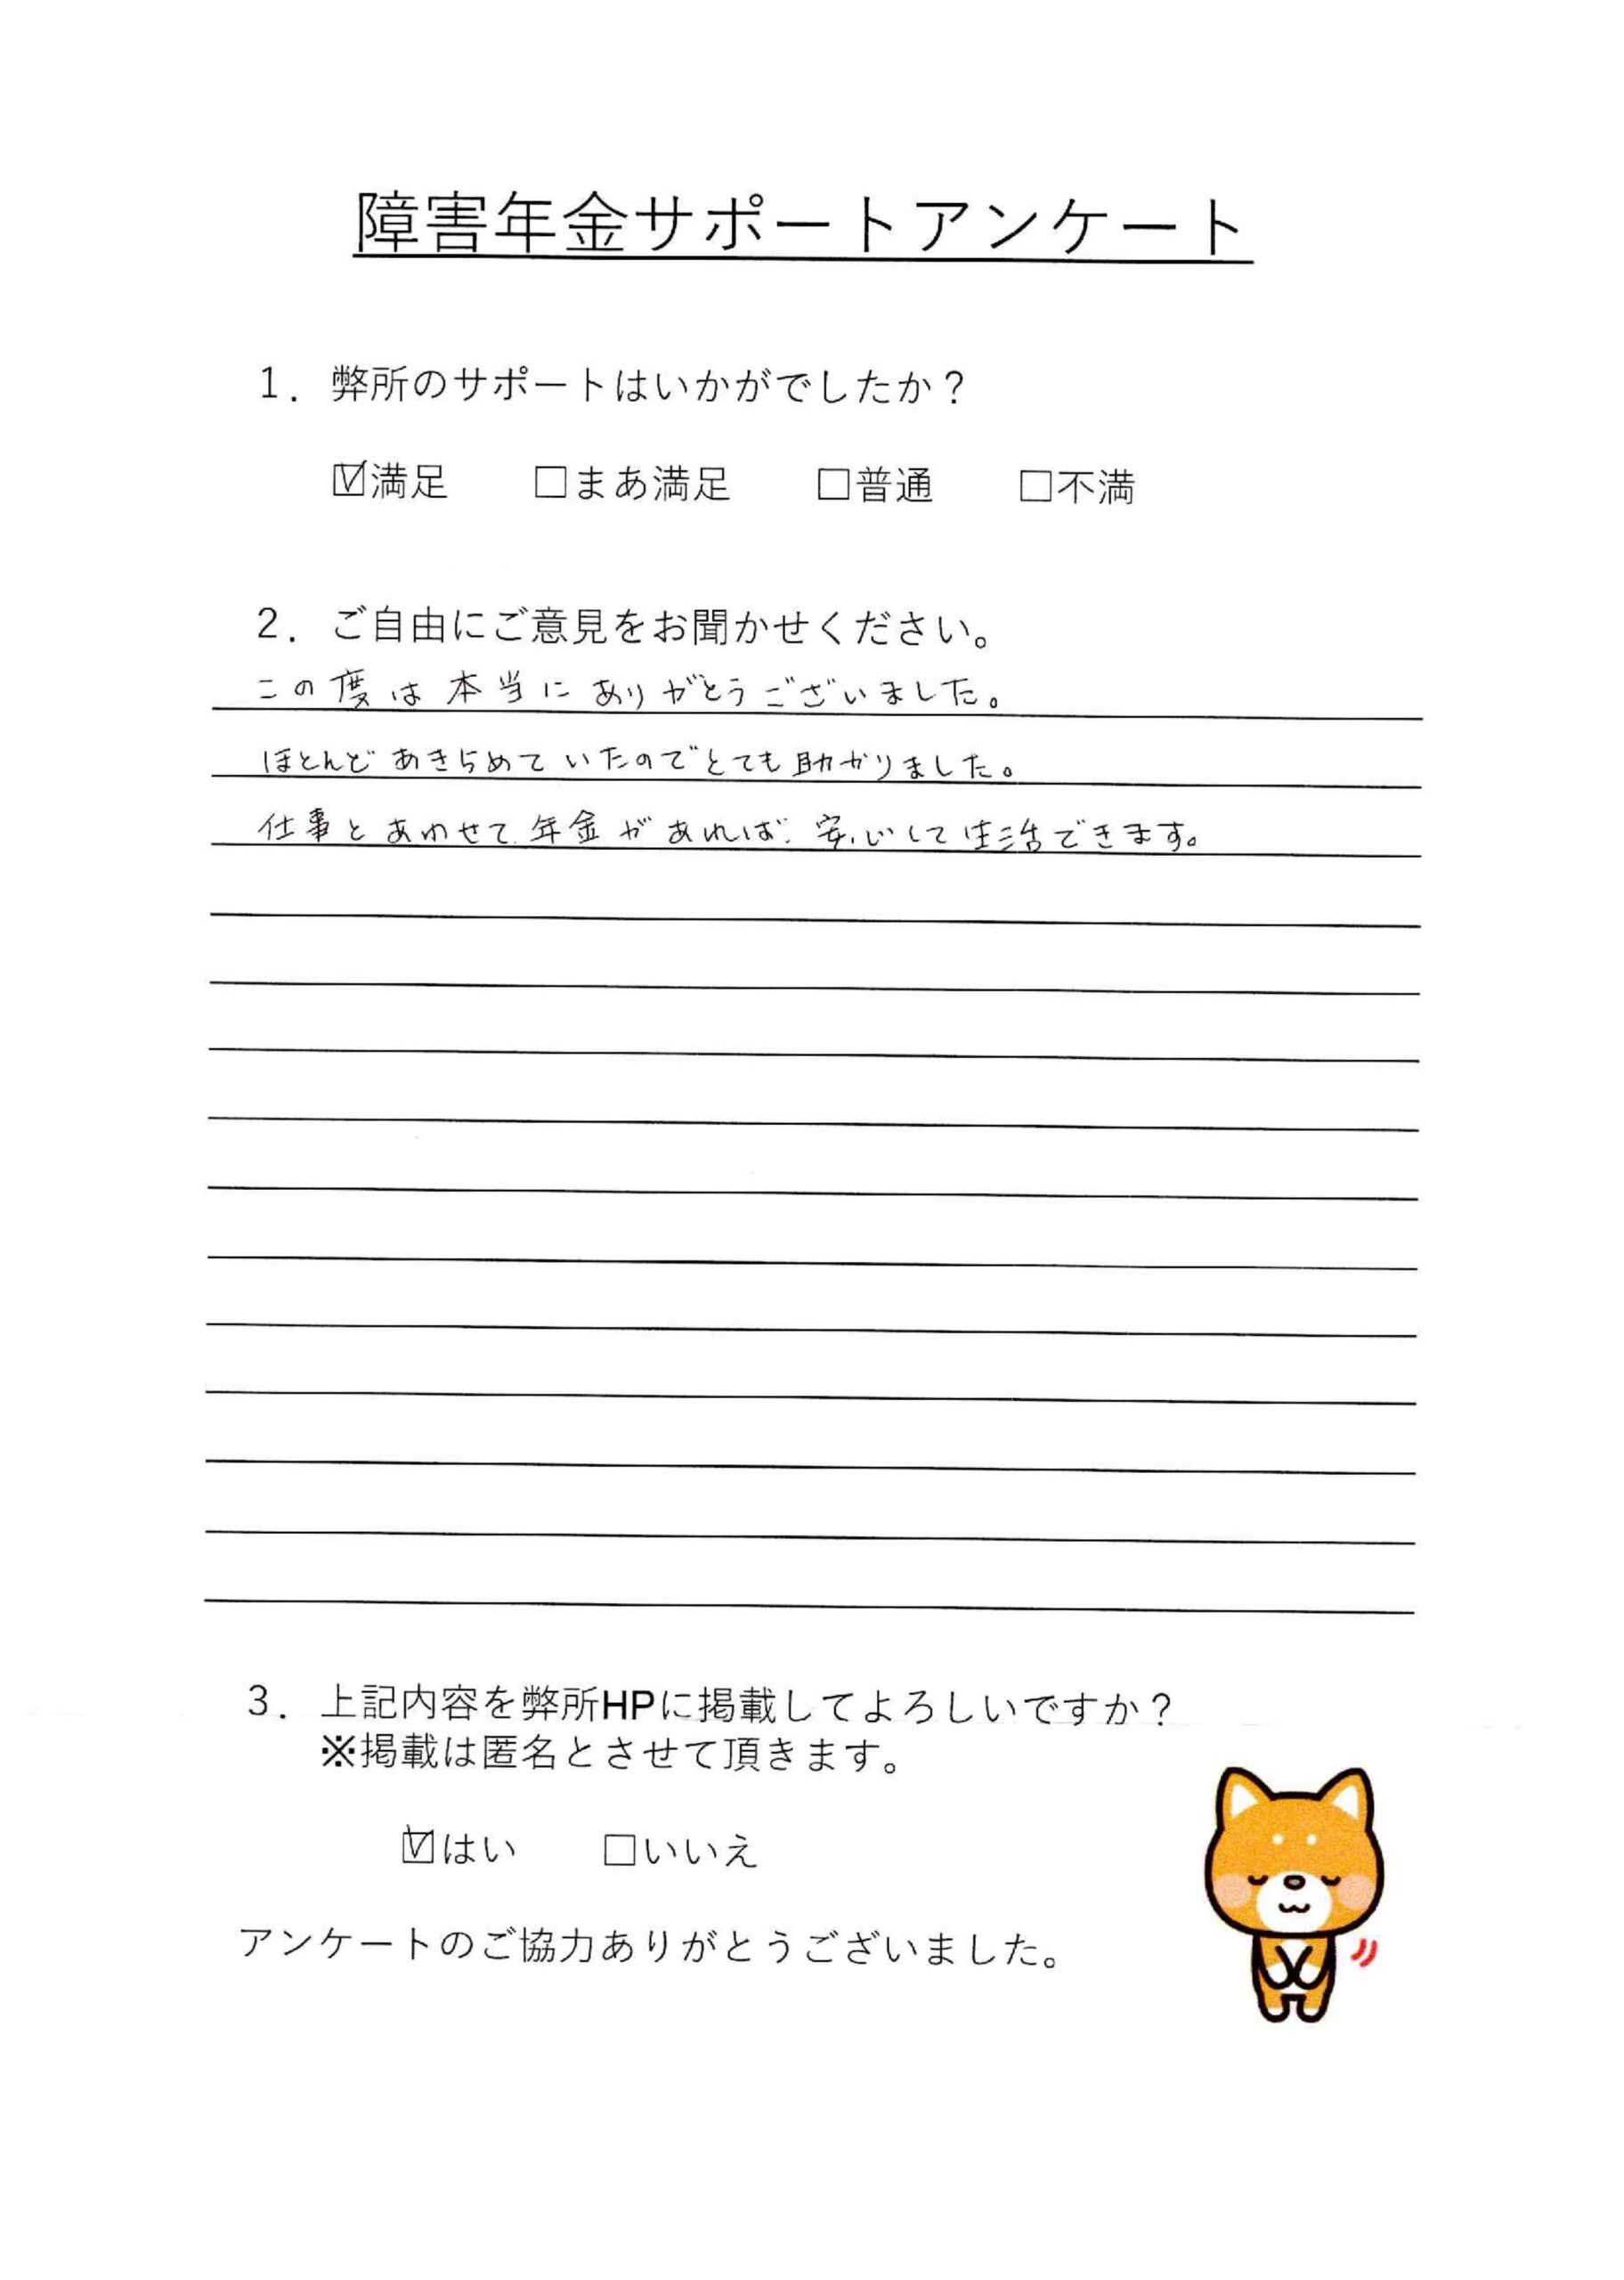 障害年金サポートアンケート
1．弊所のサポートはいかがでしたか？
☑満足　□まあ満足　□普通　□不満
2．ご自由にご意見をお聞かせください。
この度は本当にありがとうございました。
ほとんどあきらめていたのでとても助かりました。
仕事とあわせて年金があれば、安心して生活できます。
3．上記内容を弊所HPに掲載してよろしいですか？
※掲載は匿名とさせて頂きます。
☑はい　□いいえ
アンケートのご協力ありがとうございました。